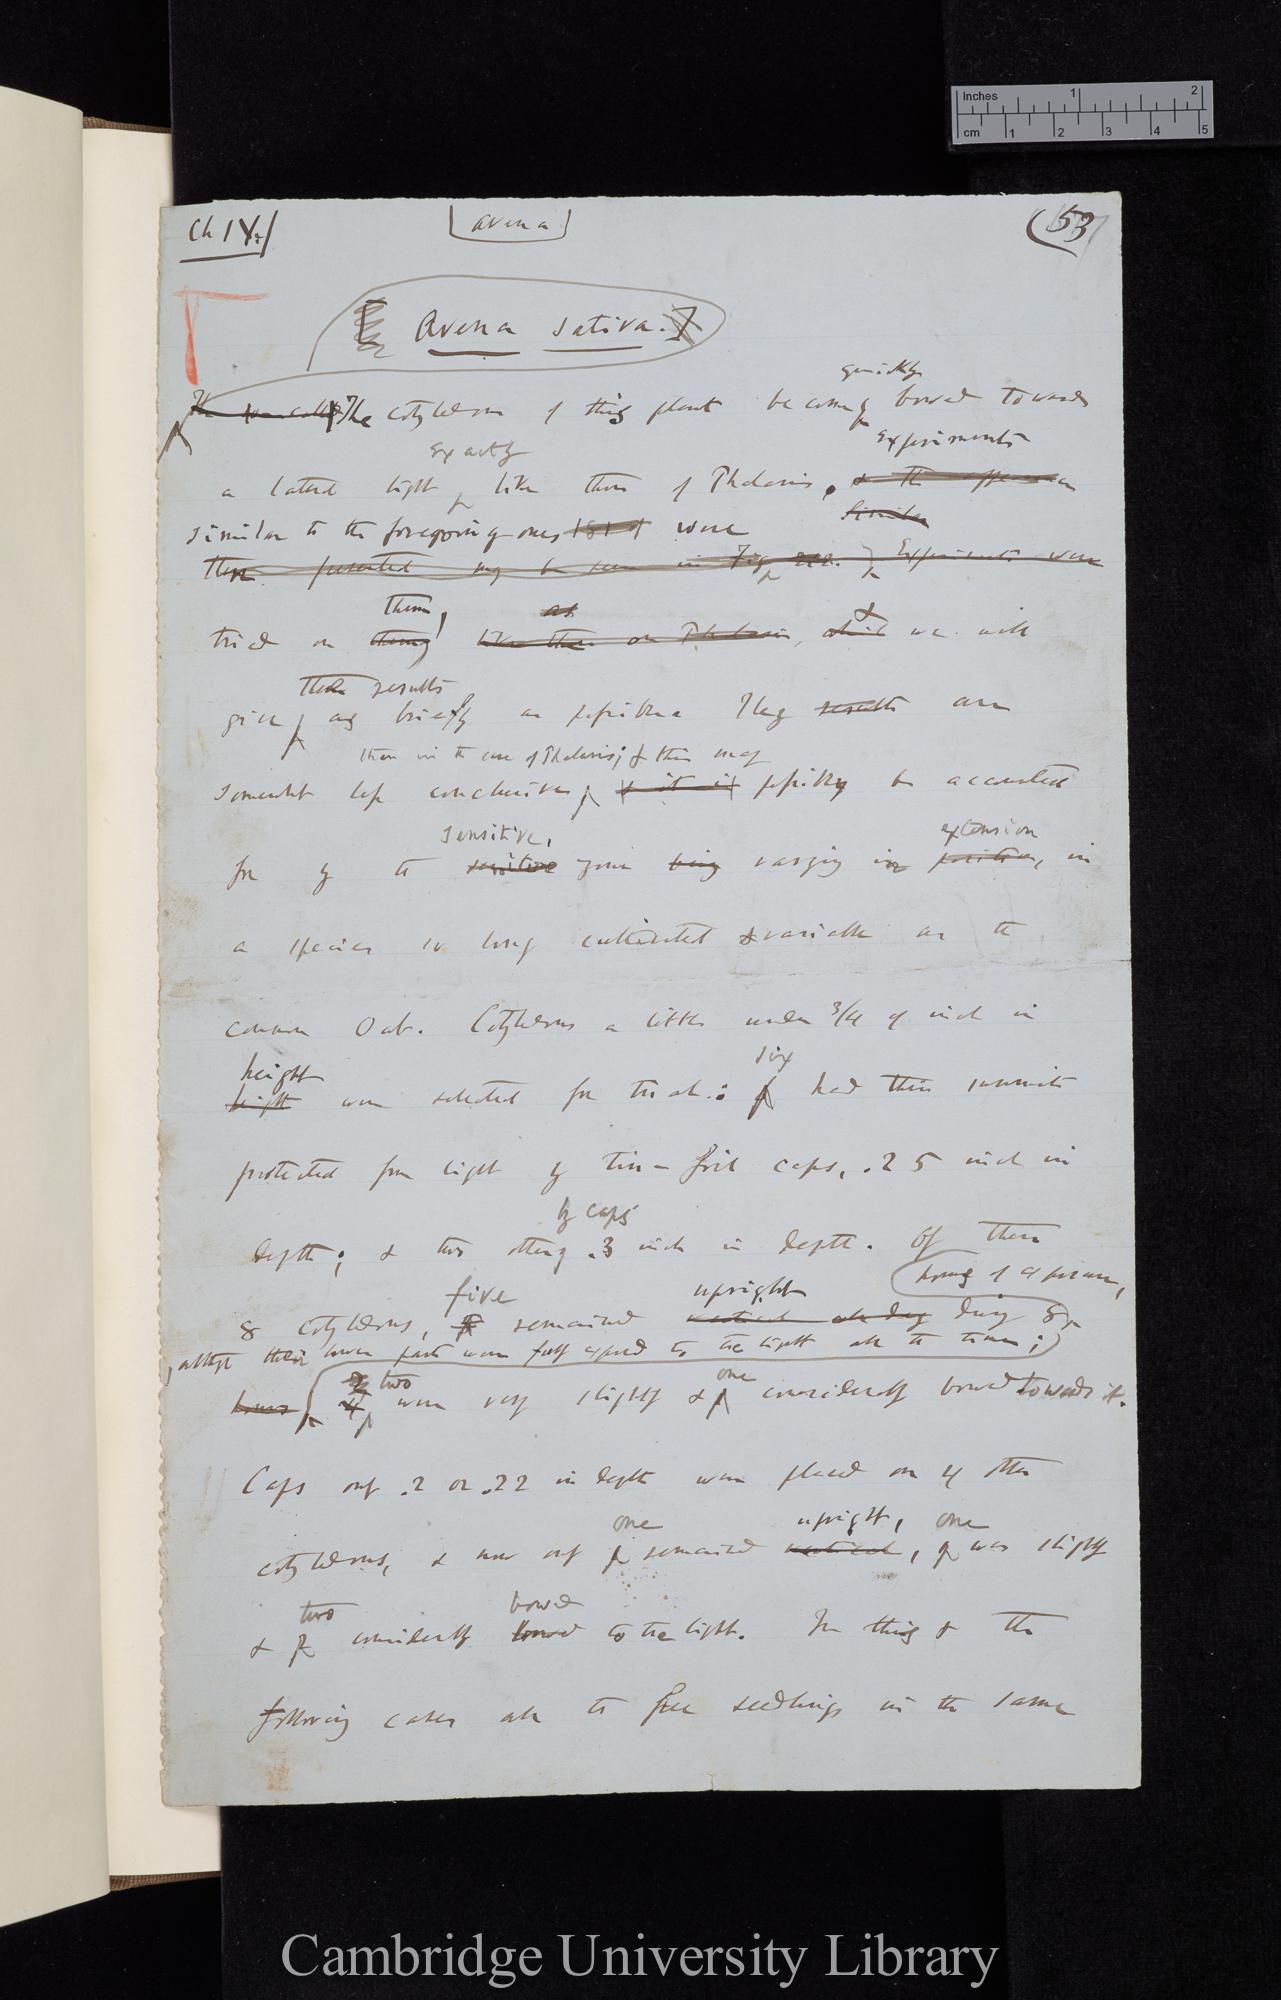 Inches 1 2
cm 1 2 3 4 5
Ch IX
Avena
(53
[Avena sativa.]
quickly
The cotyledons of this plant become bowed towards
exactly
experiments
a lateral light, like those of Phalaris,
similar
similar to the foregoing ones were
may be seen in Fig Experiments were
them, as
tried on them, like those on Phalaris, & we will
the results
give as briefly as possible. They results are
than in the case of Phalaris; & this may
somewhat less conclusive, & it is possibly be accounted
sensitive,
extension
for by the sensitive zone being varying in position, in
a species so long cultivated & variable as the
common Oat. Cotyledons a little under 3/4 of inch in
height
six
height were selected for trial: had their summits
protected from light by tin-foil caps, .25 inch in
by caps
depth; & two others .3 inch in depth. Of these
five
upright
hours of exposure,
8 cotyledons, remained vertical during 8
altho' their lower parts were fully exposed to the light all the time;
two
one
hours were very slightly & considerably bowed towards it.
Caps only .2 or .22 in depth were placed on 4 other
one
upright,
one
cotyledons, & now only remained vertical, was slightly
two
bowed
& considerably bowed to the light. In this & the
following cases all the free seedlings in the same
Cambridge University Library